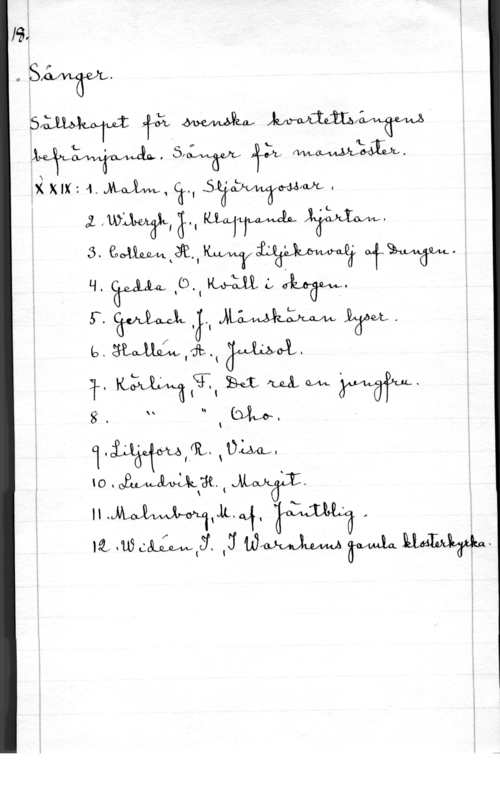 18.
Sånger.
Sällskapet för svenska kvartettsångens
befrämjande. Sånger för mansröster.
XXIX: 1. Malm, G., Stjärngossar.
2. Wibergh, J., Klappande hjärtan.
3. Cotleen, H., Kung Liljekonvalj af Dungen.
4. Gedda, O., Kväll i skogen.
5. Gerlach, J., Månskäran lyser.
6. Hallén, A., Julisol.
7. Körling, F., Det red en jungfru.
8. " " , Eho.
9. Liljefors, R., Visa.
10. Lundvik, H., Margit.
11. Malmborg, M. af, Jäntblig.
12. Widéen, I., I Warnhems gamla klosterkyrka.